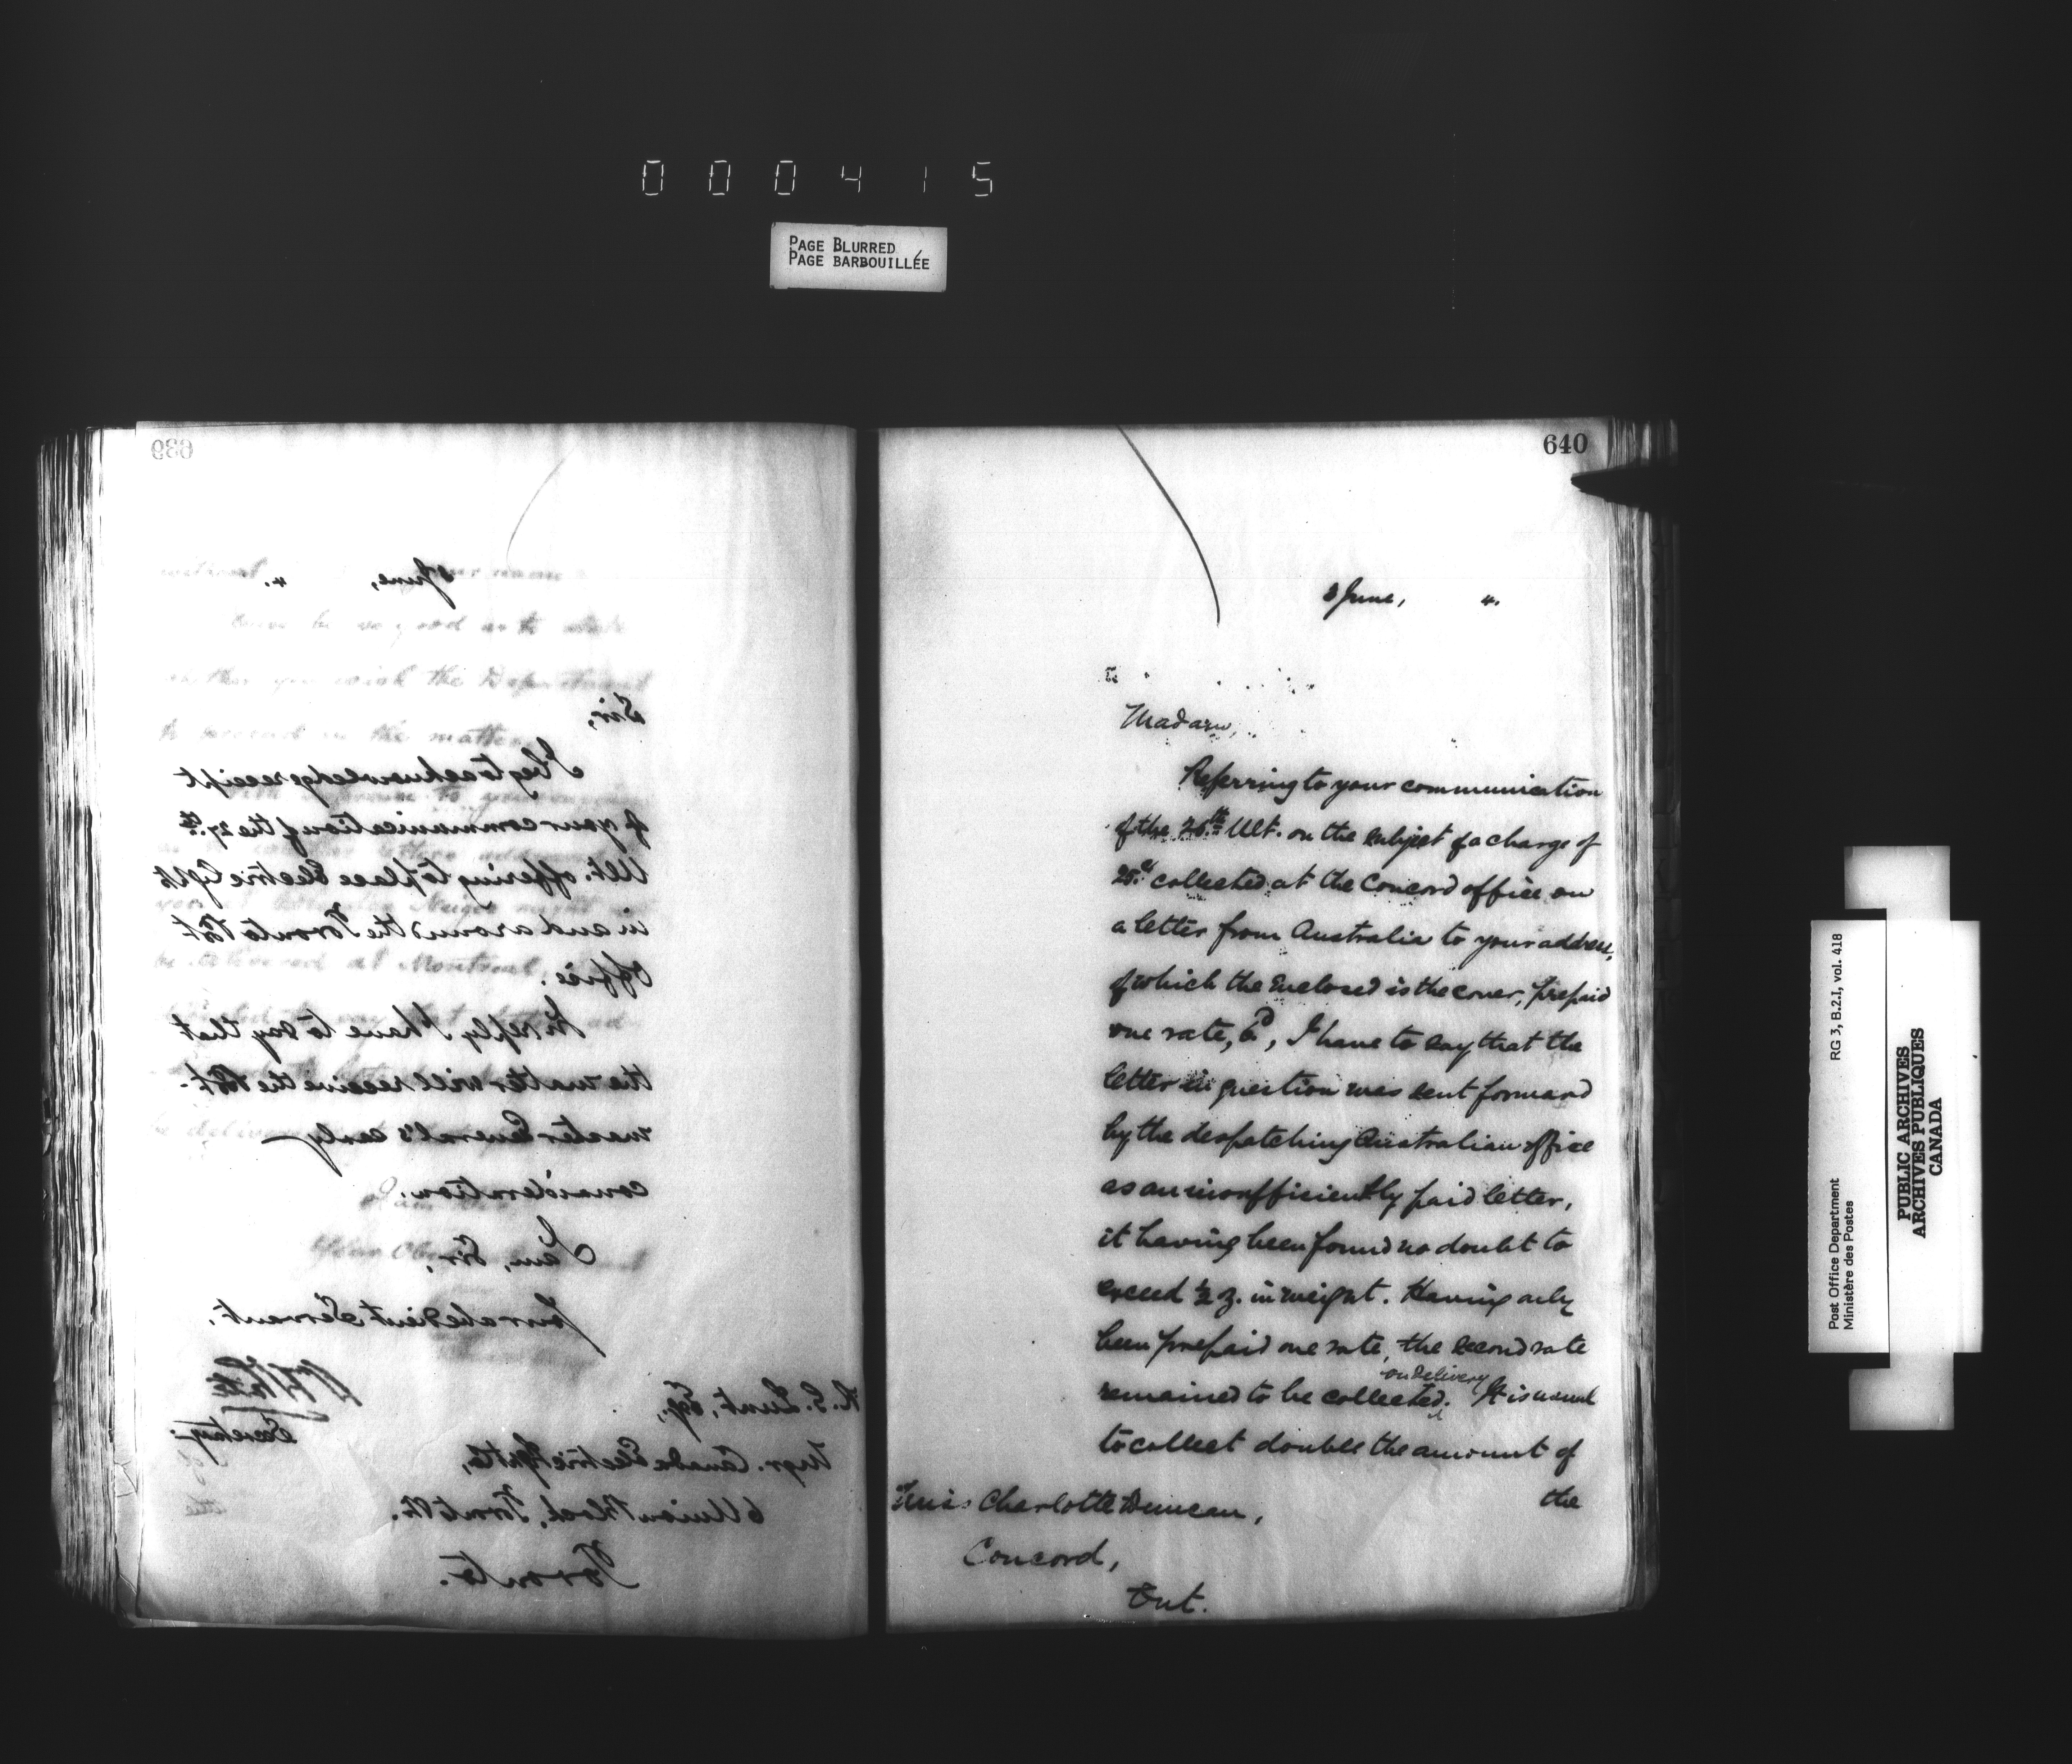 000415
PAGE BLURRED
PAGE BARBOUILLÉE
639
June, 4.
Sir,
I beg to acknowledge receipt
of your communication of the 27th
Ult. offering to place Electric light
in and around the Toronto Post
Office.
In reply I have to say that
the matter will receive the Post-
master General's early
consideration.
I am, Sir,
Your obedient Servant,
Secretary
Esq.,
Mgr. Canada Electric Light Co,
6 Union Block, Toronto St.
Toronto.
640
3 June, 4.
Madam,
Referring to your communication
of the 26th Ult. on the subject of a charge of
25c collected at the Concord office on
a letter from Australia to your address,
of which the enclosed is the cover, prepaid
one rate, 6d, I have to say that the
letter in question was sent forward
by the despatching Australian office
as an insufficiently paid letter,
it having been found no doubt to
exceed ½ oz. in weight. Having only
been prepaid one rate, the second rate
on delivery
remained to be collected. It is usual
to collect double the amount of
the
Miss Charlotte Duncan,
Concord,
Ont.
Post Office Department RG 3, B.2.I, vol. 418
Ministère des Postes
PUBLIC ARCHIVES
ARCHIVES PUBLIQUES
CANADA